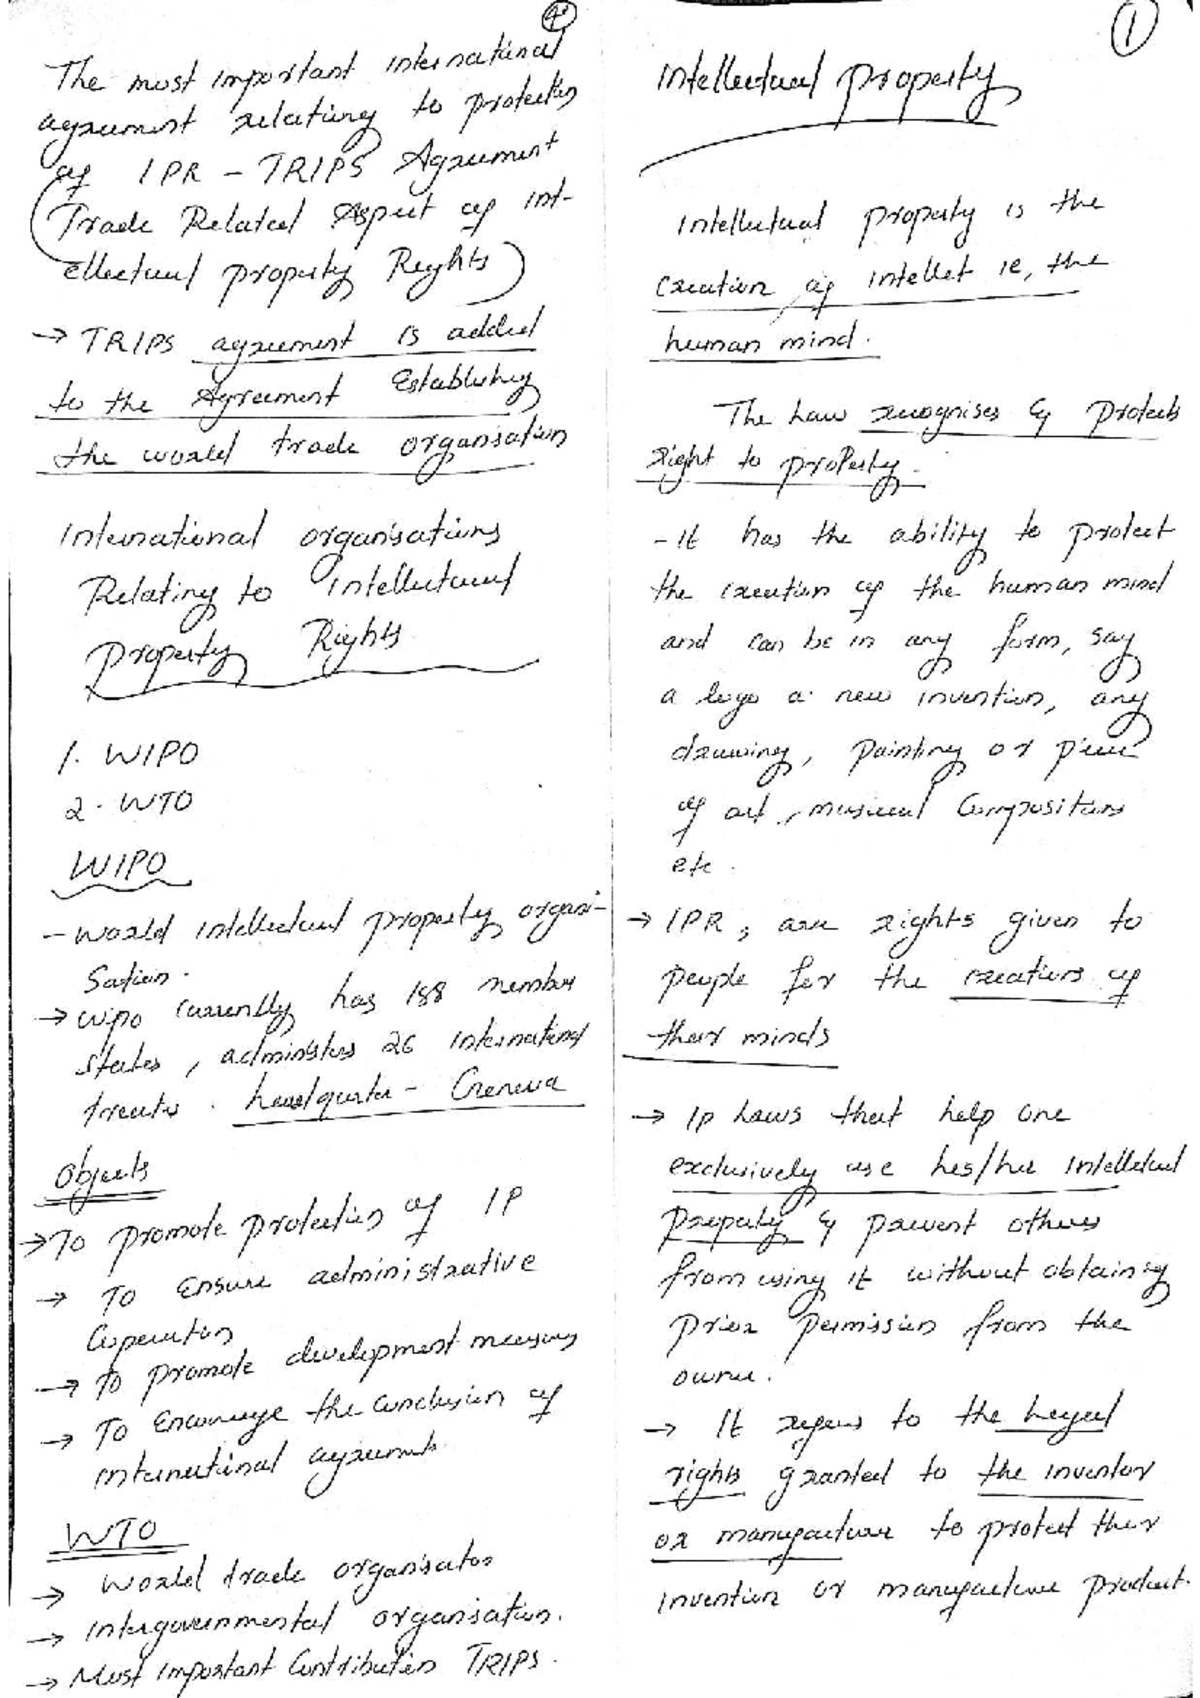 4
The most important international
agreement relating to protection
of IPR - TRIPS Agreement
(Trade Related Aspect of Int-
ellectual property Rights)
→ TRIPS agreement is added
to the Agreement Establishing
the world trade organisation
International organisations
Relating to Intellectual
Property Rights
1. WIPO
2. WTO
WIPO
- World intellectual property organi-
sation.
→ wipo currently has 188 member
states, administers 26 international
treaties. headquarter - Geneva
Objects
→ To promote protection of IP
→ To Ensure administrative
Cooperation
→ To promote development measures
→ To Encourage the conclusion of
international agreements
WTO
→ World trade organisation
→ Intergovernmental organisation.
→ Most Important Contribution TRIPS.
1
Intellectual property
Intellectual property is the
creation of intellet ie, the
human mind.
The Law recognises & protects
right to property.
- It has the ability to protect
the creation of the human mind
and can be in any form, say
a logo a new invention, any
drawing, painting or piece
of art, musical Compositions
etc.
→ IPR, are rights given to
people for the creations of
their minds
→ Ip Laws that help one
exclusively use his/her intellectual
property & prevent others
from using it without obtaining
prior permission from the
owner.
→ It refers to the legal
rights granted to the inventor
or manufacture to protect their
invention or manufacture product.